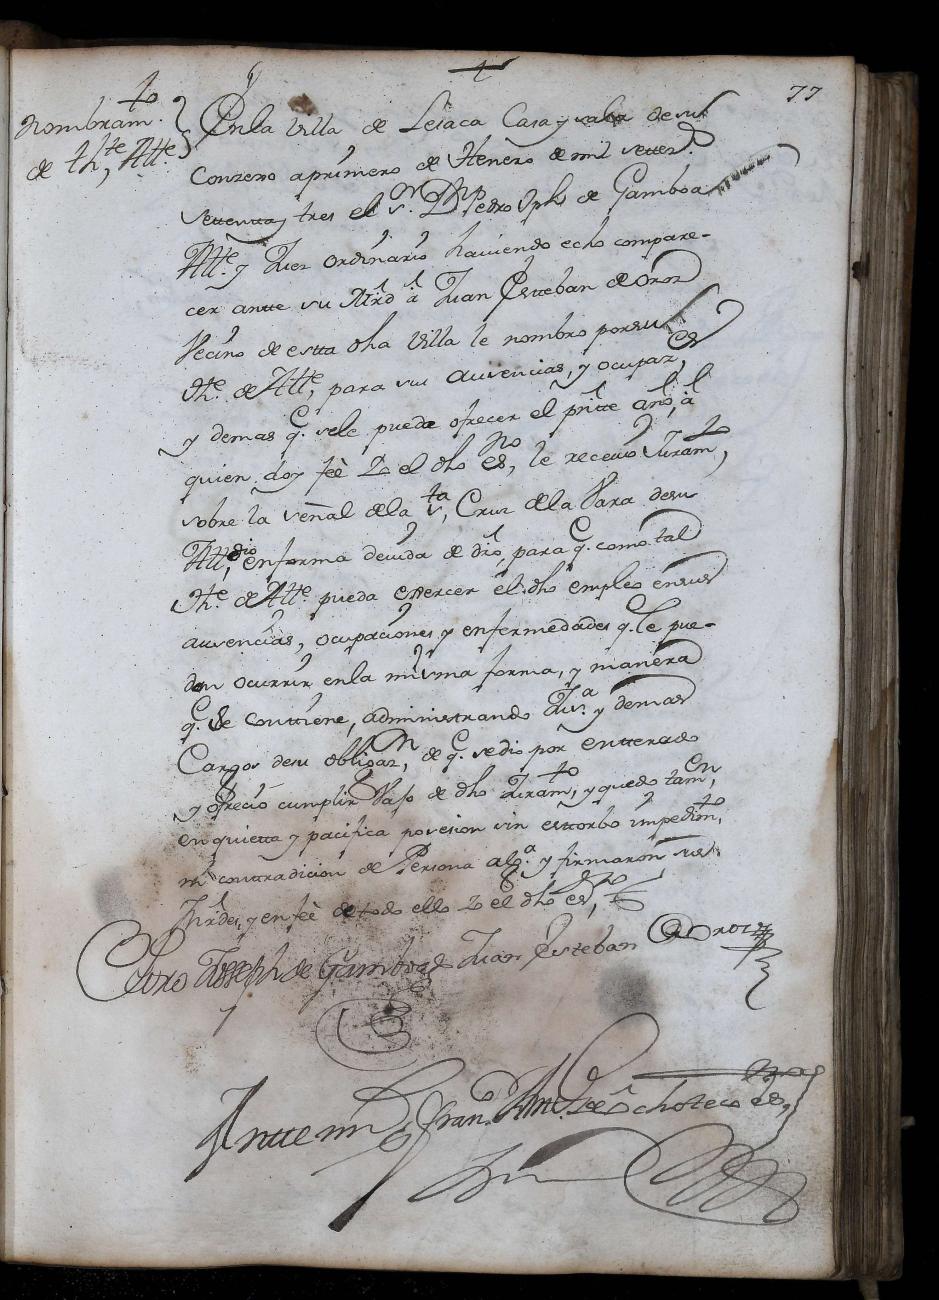 77
Nombram.to
de th.te Att.e
En la Villa de Lesaca Casa y sala de sus
Conzexo a primero de Henero de mil settez.os
settentta y tres el s.r D.n Pedro Jph de Gamboa
Att.e y Juez ordinario haviendo echo compare-
cer antte su Mrd à Juan Esteban de Oroz
Vecino de estta dha Villa le nombro por su
th.e de Att.e, para sus ausencias, y ocupaz.es
y demas q. sele puede ofrecer el pntte año, à
quien doy feè Yo el dho es.no, le recevio Juram.to,
sobre la señal dela s.ta Cruz dela Vara desu
Att.dia, en forma devida de dro, para q. como tal
th.e de Att.e pueda exercer el dho empleo en sus
ausencias, ocupaciones y enfermedades q. le pue-
dan ocurrir en la misma forma, y manera
q. se conttiene, administrando Jus.a y demas
Cargos desu obligaz.n, de q. se dio por entterado
y ofrecio cumplir Vajo de dho Juram.to, y quedo tam.en,
en quietta y pacifica posesion sin esttorbo impedim.to,
ni conttradicion de Persona alg.a y firmaron sus
Mrdes, y en feè de todo ello Yo el dho es.no,
Pedro Joseph de Gamboa Juan Esteban de Oroz
Antte mi Fran.co Ant.o de Ochoteco es.no